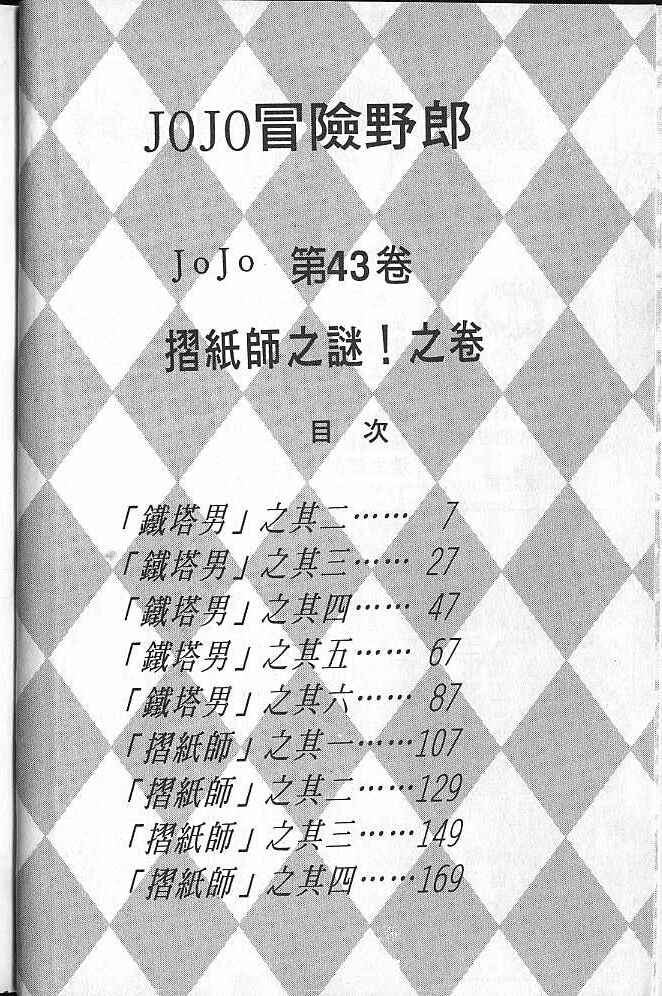 JOJO冒險野郎
JoJo 第43卷
摺紙師之謎！之卷
目 次
「鐵塔男」之其二…… 7
「鐵塔男」之其三…… 27
「鐵塔男」之其四…… 47
「鐵塔男」之其五…… 67
「鐵塔男」之其六…… 87
「摺紙師」之其一……107
「摺紙師」之其二……129
「摺紙師」之其三……149
「摺紙師」之其四……169